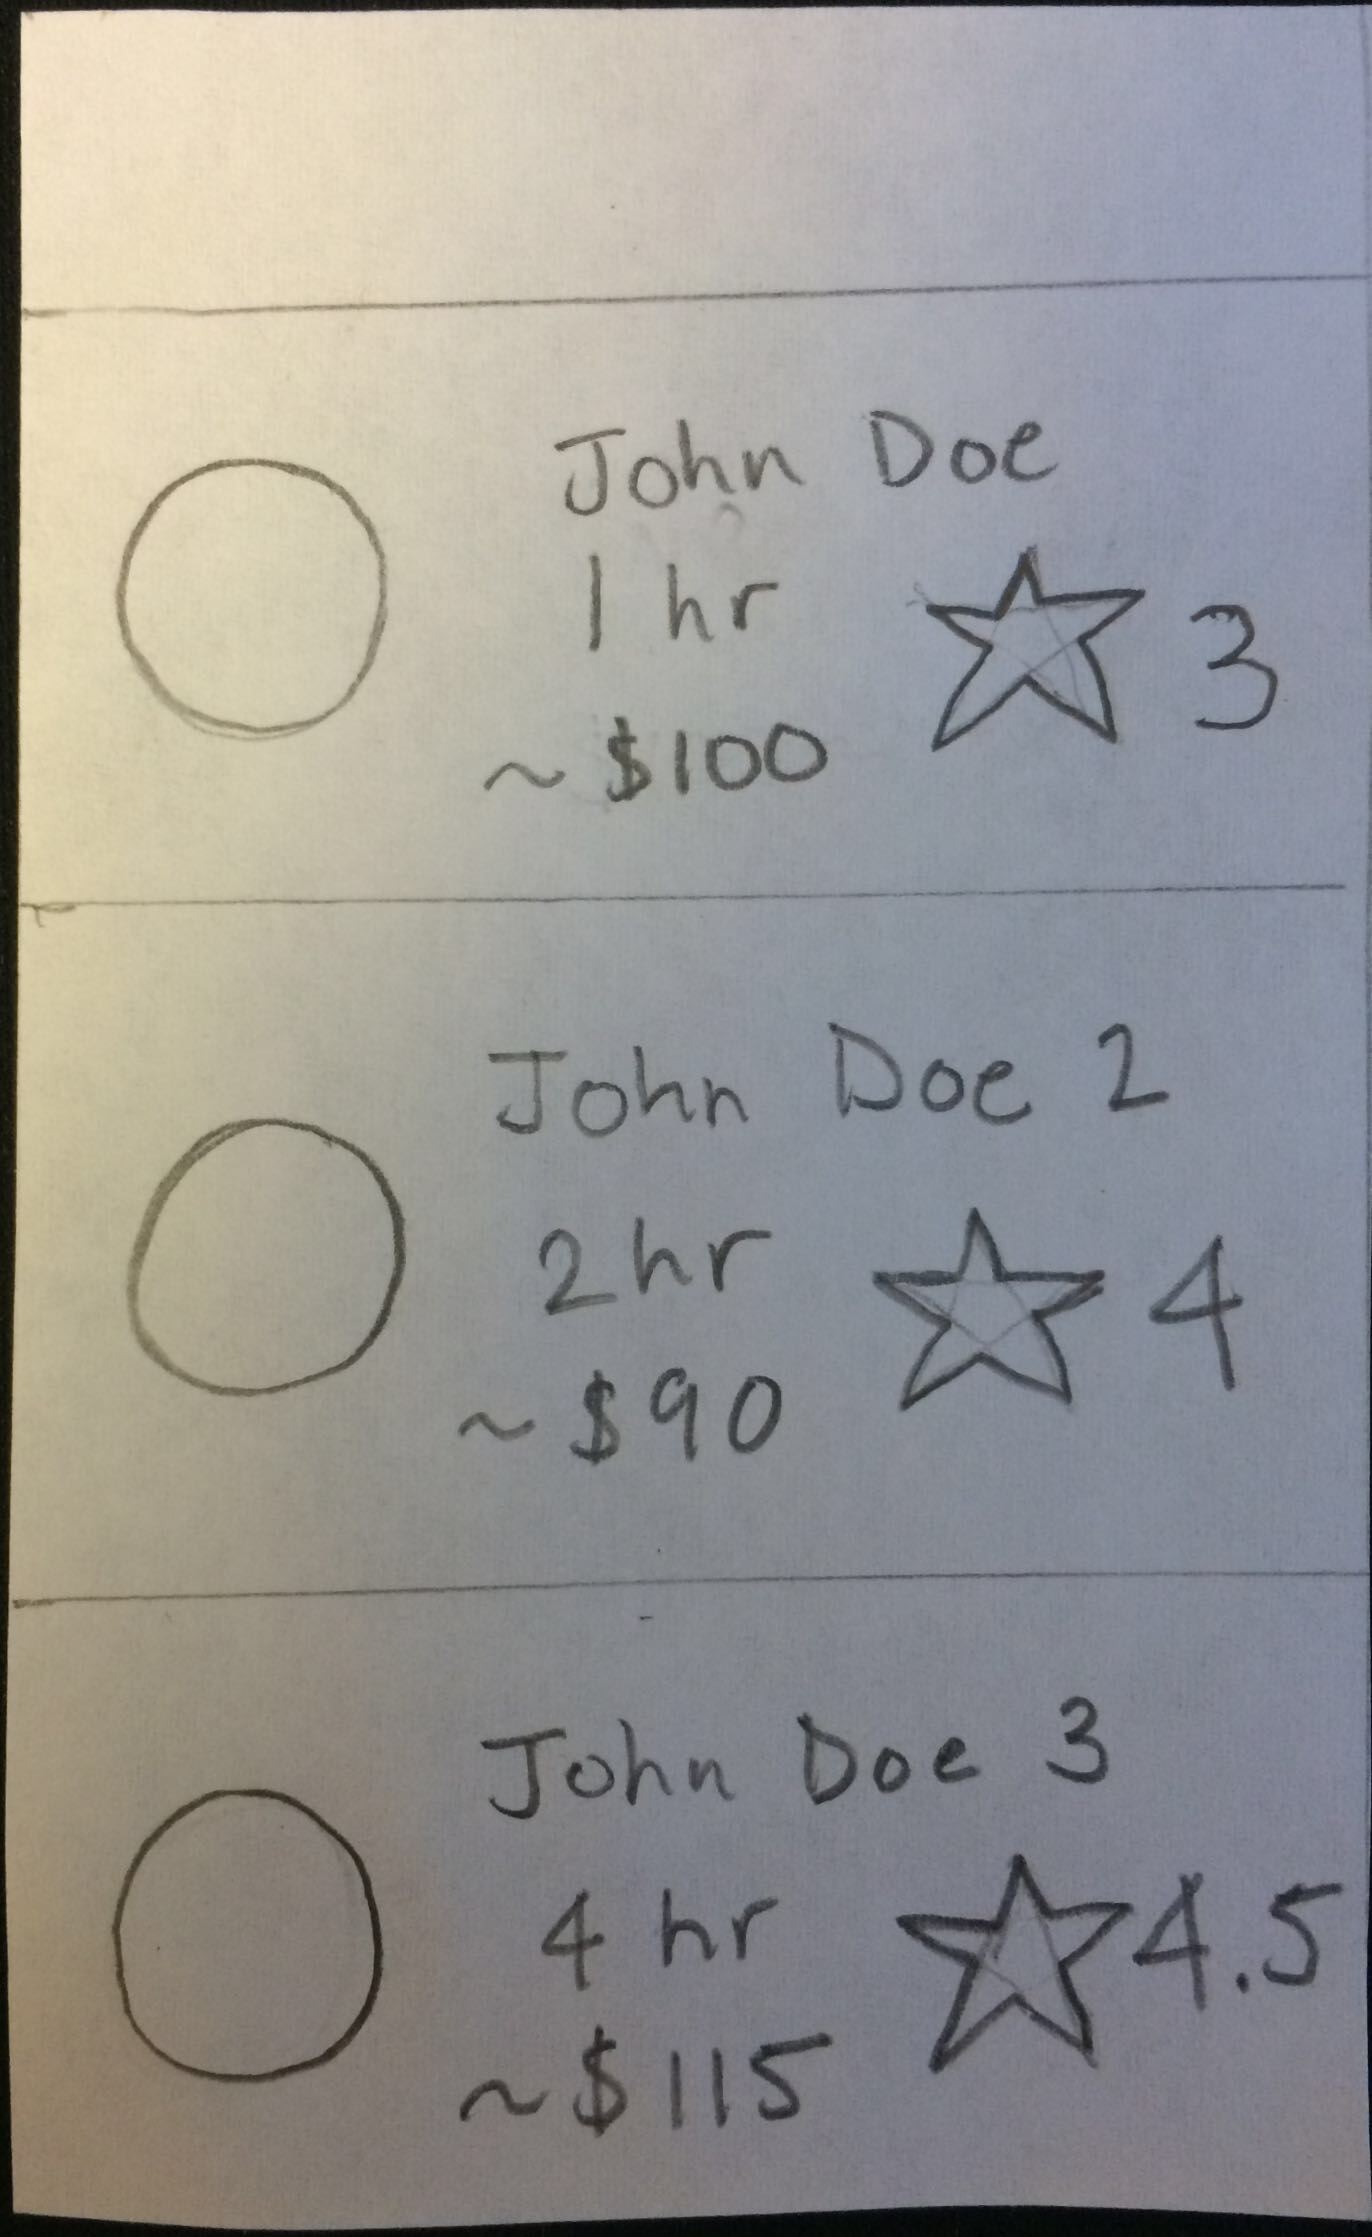 John Doe
1 hr 3
~$100
John Doe 2
2 hr 4
~$90
John Doe 3
4 hr 4.5
~$115